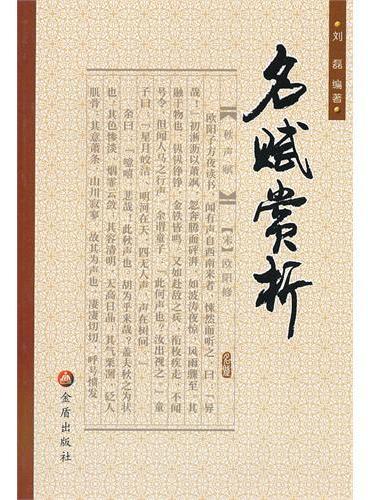 刘磊 编著
名赋赏析
【秋声赋】【宋】欧阳修
欧阳子方夜读书,闻有声自西南来者,悚然而听之,曰:“异
哉!”初淅沥以萧飒,忽奔腾而砰湃,如波涛夜惊,风雨骤至,其
触于物也,鏦鏦铮铮,金铁皆鸣,又如赴敌之兵,衔枚疾走,不闻
号令,但闻人马之行声。余谓童子:“此何声也?汝出视之。”童
子曰:“星月皎洁,明河在天,四无人声,声在树间。”
余曰:“噫嘻,悲哉!此秋声也,胡为乎来哉?盖夫秋之为状
也:其色惨淡,烟霏云敛;其容清明,天高日晶;其气栗冽,砭人
肌骨;其意萧条,山川寂寥。故其为声也,凄凄切切,呼号愤发
金盾出版社